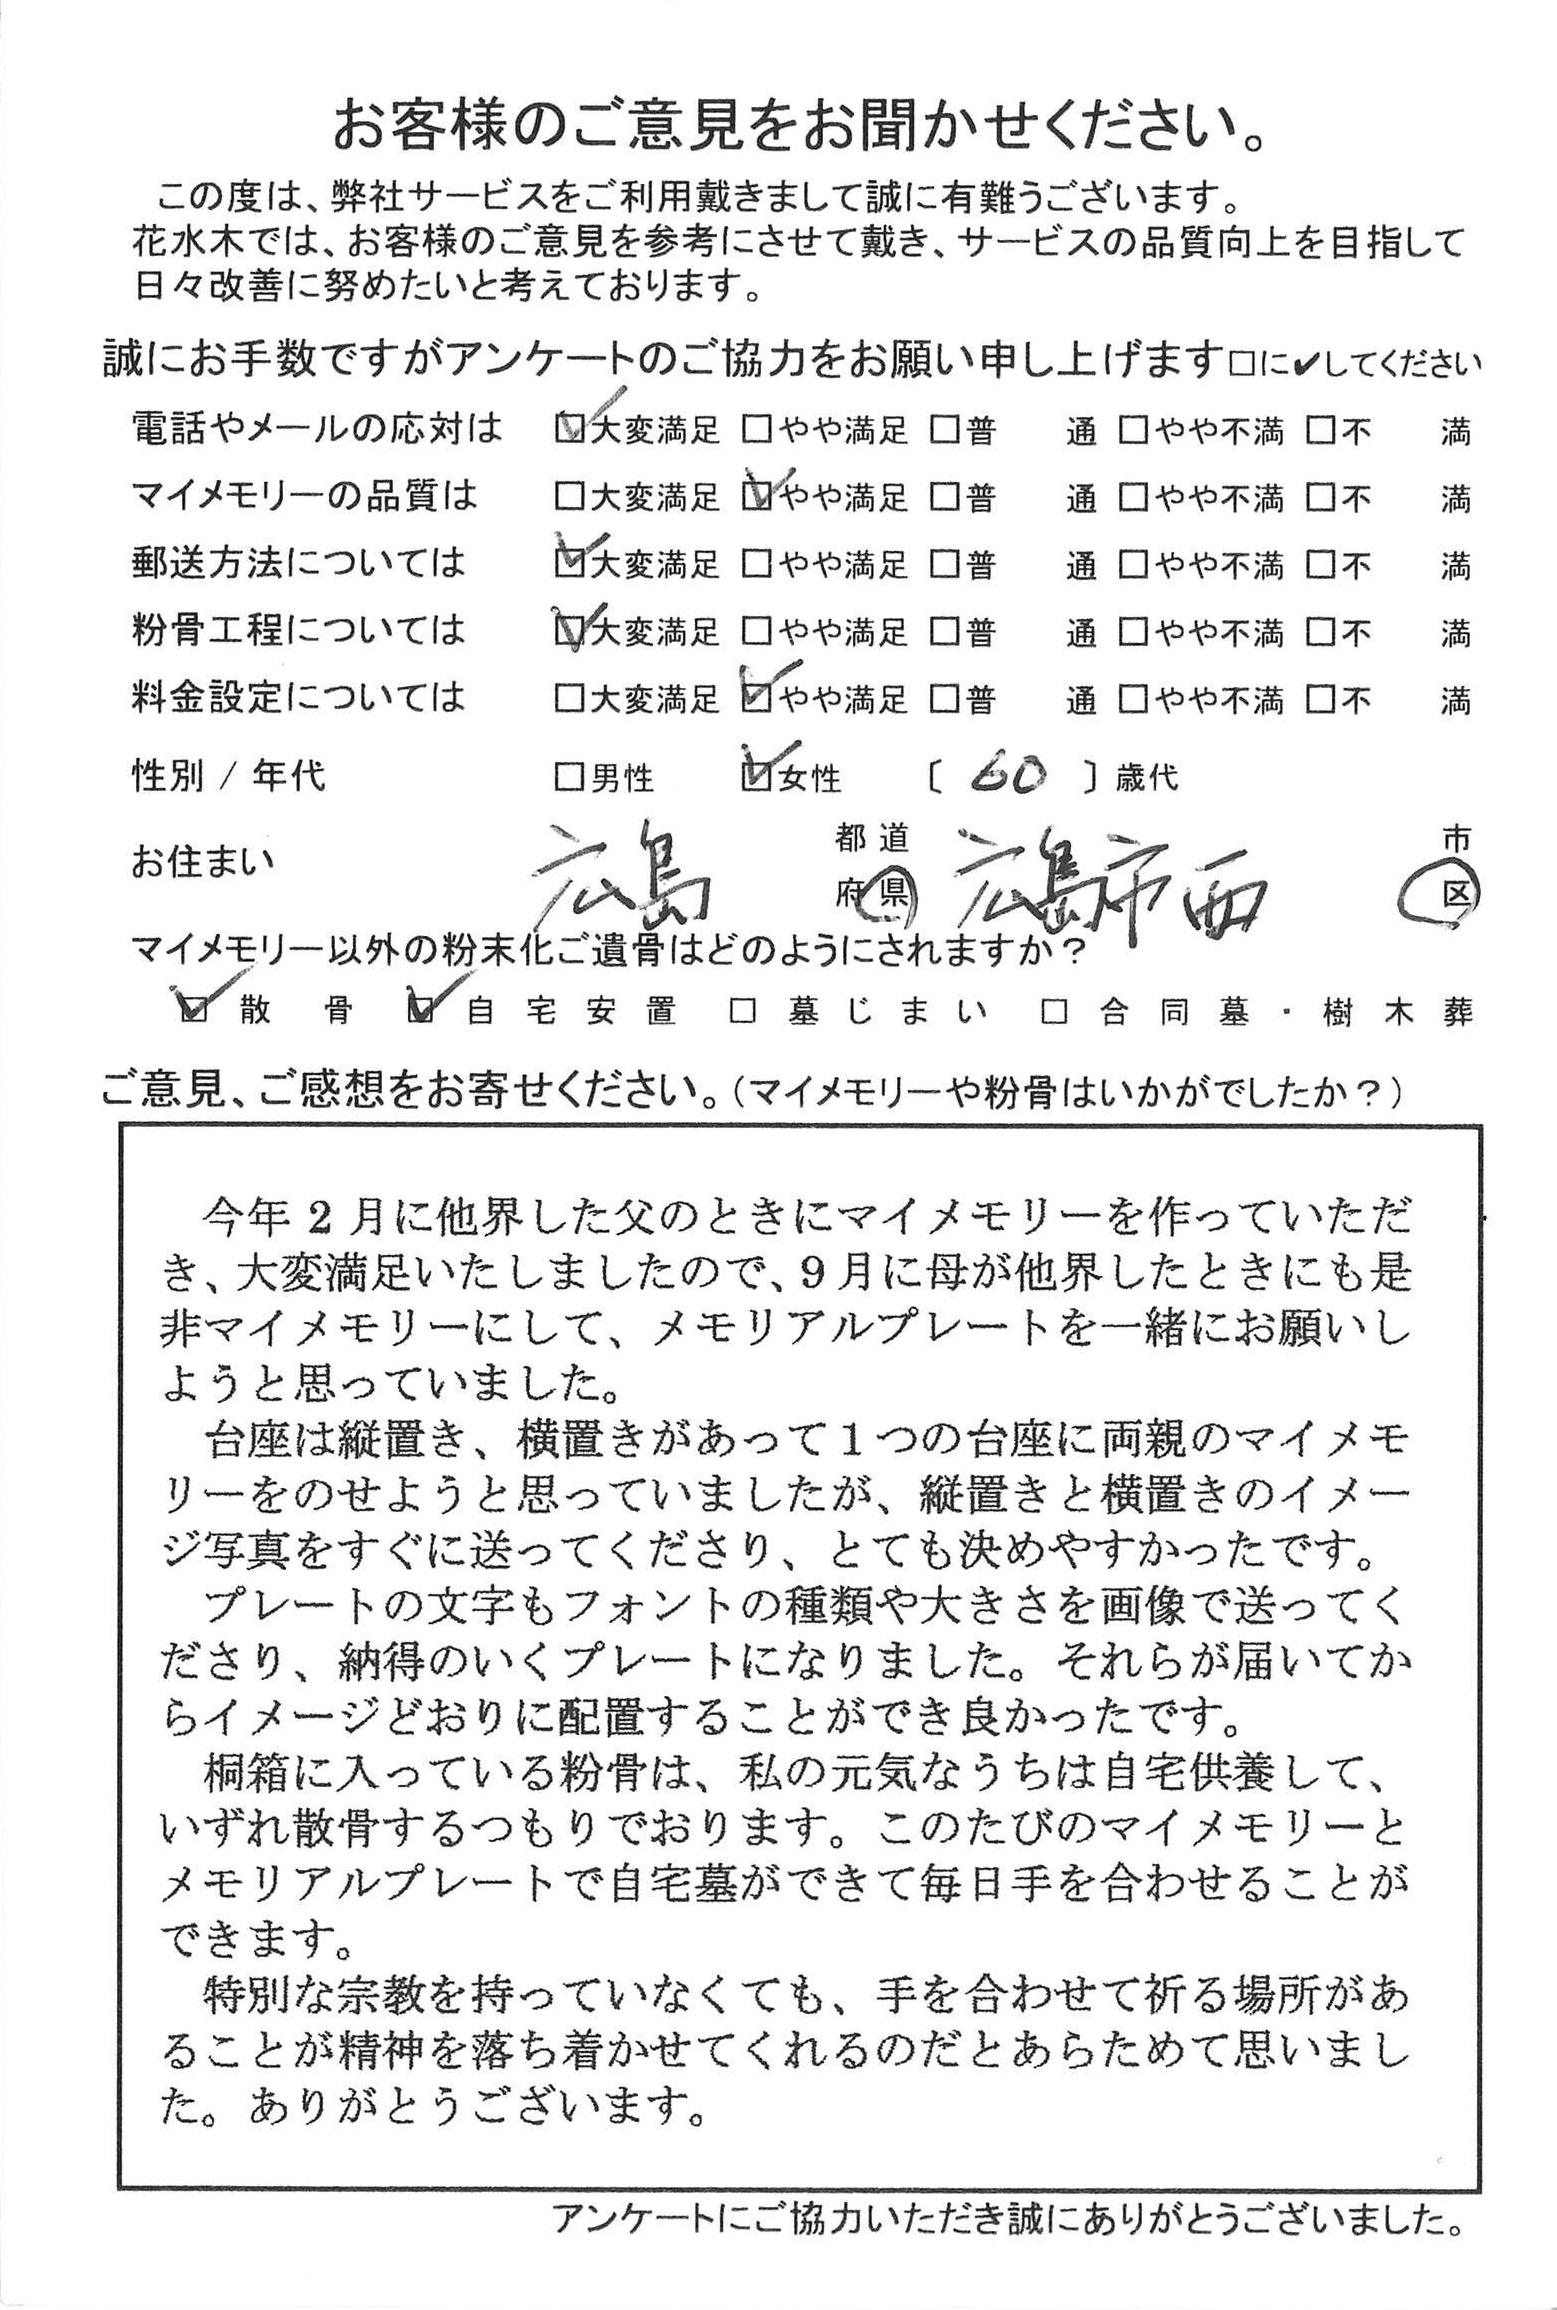 お客様のご意見をお聞かせください。
この度は、弊社サービスをご利用戴きまして誠に有難うございます。
花水木では、お客様のご意見を参考にさせて戴き、サービスの品質向上を目指して
日々改善に努めたいと考えております。
誠にお手数ですがアンケートのご協力をお願い申し上げます□に✔してください
電話やメールの応対は ☑大変満足 □やや満足 □普 通 □やや不満 □不 満
マイメモリーの品質は □大変満足 ☑やや満足 □普 通 □やや不満 □不 満
郵送方法については ☑大変満足 □やや満足 □普 通 □やや不満 □不 満
粉骨工程については ☑大変満足 □やや満足 □普 通 □やや不満 □不 満
料金設定については □大変満足 ☑やや満足 □普 通 □やや不満 □不 満
性別 / 年代 □男性 ☑女性 〔 60 〕歳代
お住まい 広島 都道府県 広島市西 市区
マイメモリー以外の粉末化ご遺骨はどのようにされますか？
☑ 散骨 ☑ 自宅安置 □ 墓じまい □ 合同墓・樹木葬
ご意見、ご感想をお寄せください。（マイメモリーや粉骨はいかがでしたか？）
今年 2 月に他界した父のときにマイメモリーを作っていただ
き、大変満足いたしましたので、9 月に母が他界したときにも是
非マイメモリーにして、メモリアルプレートを一緒にお願いし
ようと思っていました。
台座は縦置き、横置きがあって 1 つの台座に両親のマイメモ
リーをのせようと思っていましたが、縦置きと横置きのイメー
ジ写真をすぐに送ってくださり、とても決めやすかったです。
プレートの文字もフォントの種類や大きさを画像で送ってく
ださり、納得のいくプレートになりました。それらが届いてか
らイメージどおりに配置することができ良かったです。
桐箱に入っている粉骨は、私の元気なうちは自宅供養して、
いずれ散骨するつもりでおります。このたびのマイメモリーと
メモリアルプレートで自宅墓ができて毎日手を合わせることが
できます。
特別な宗教を持っていなくても、手を合わせて祈る場所があ
ることが精神を落ち着かせてくれるのだとあらためて思いまし
た。ありがとうございます。
アンケートにご協力いただき誠にありがとうございました。